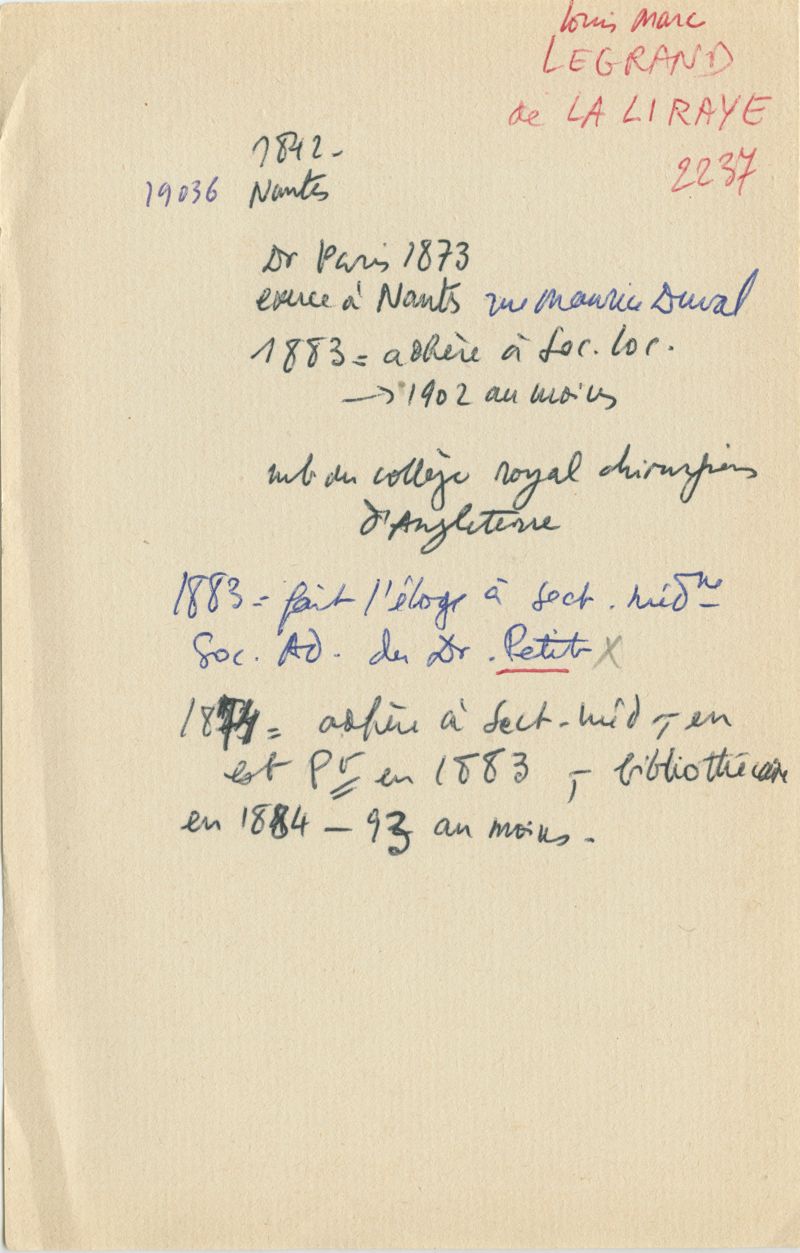 Louis Marc
LEGRAND
de LA LIRAYE
2237
1842-
19036 Nantes
Dr Paris 1873
exerce à Nantes rue Maurice Duval
1883 = adhère à Soc. loc.
→ 1902 au moins
mb du collège royal chirurgiens
d'Angleterre
1883 = fait l'éloge à sect. médne
Soc. Ad. du Dr. Petit X
1874 = adhère à Sect. méd -, en
est Pt en 1883, - bibliothécaire
en 1884 - 93 au moins.